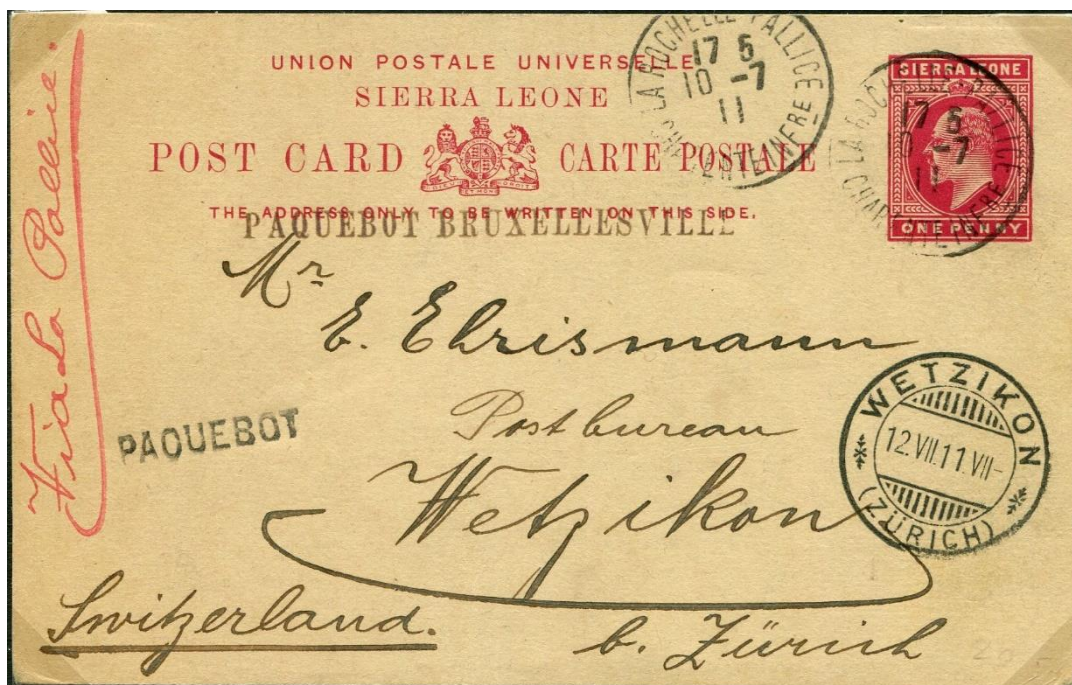 UNION POSTALE UNIVERSELLE
SIERRA LEONE
POST CARD CARTE POSTALE
THE ADDRESS ONLY TO BE WRITTEN ON THIS SIDE.
PAQUEBOT BRUXELLESVILLE
LA ROCHELLE PALLICE
17 5
10 -7
11
SIERRA LEONE
ONE PENNY
LA ROCHELLE PALLICE
17 5
10 -7
11
Via La Pallice.
Mr
E. Ehrismann
Postbureau
Wetzikon
b. Zürich
Switzerland.
PAQUEBOT
WETZIKON
12.VII.11.VII-
(ZÜRICH)